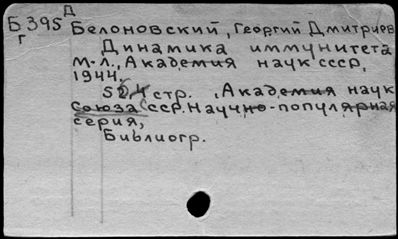 Д
Б 395 Белоновский, Георгий Дмитриев
г Динамика иммунитета
М-Л., Академия наук СССР,
1944.
стр. Академия наук
Союза ССР. Научно-популярная
серия,
Библиогр.